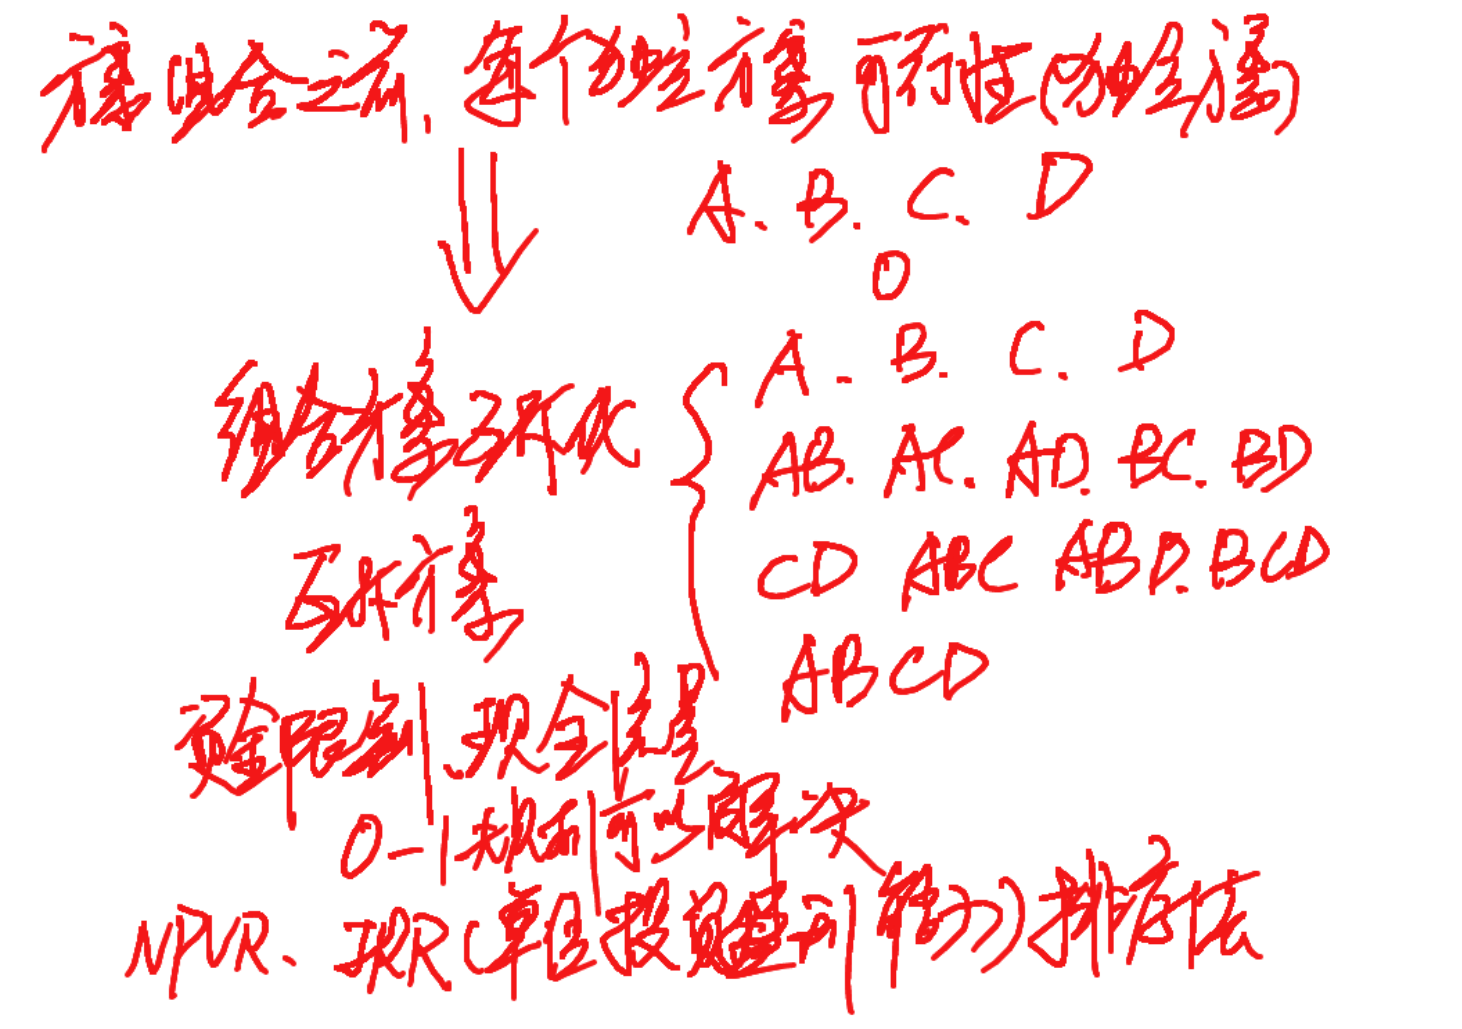 方案组合之前,每个独立方案可行性(独立方案)
A. B. C. D
0
A. B. C. D
组合方案互斥化
AB. AC. AD. BC. BD
CD ABC ABD. BCD
互斥方案
ABCD
资金限制、现金流量
0-1规划可以解决
NPVR、IRR(单位投资盈利能力)排序法